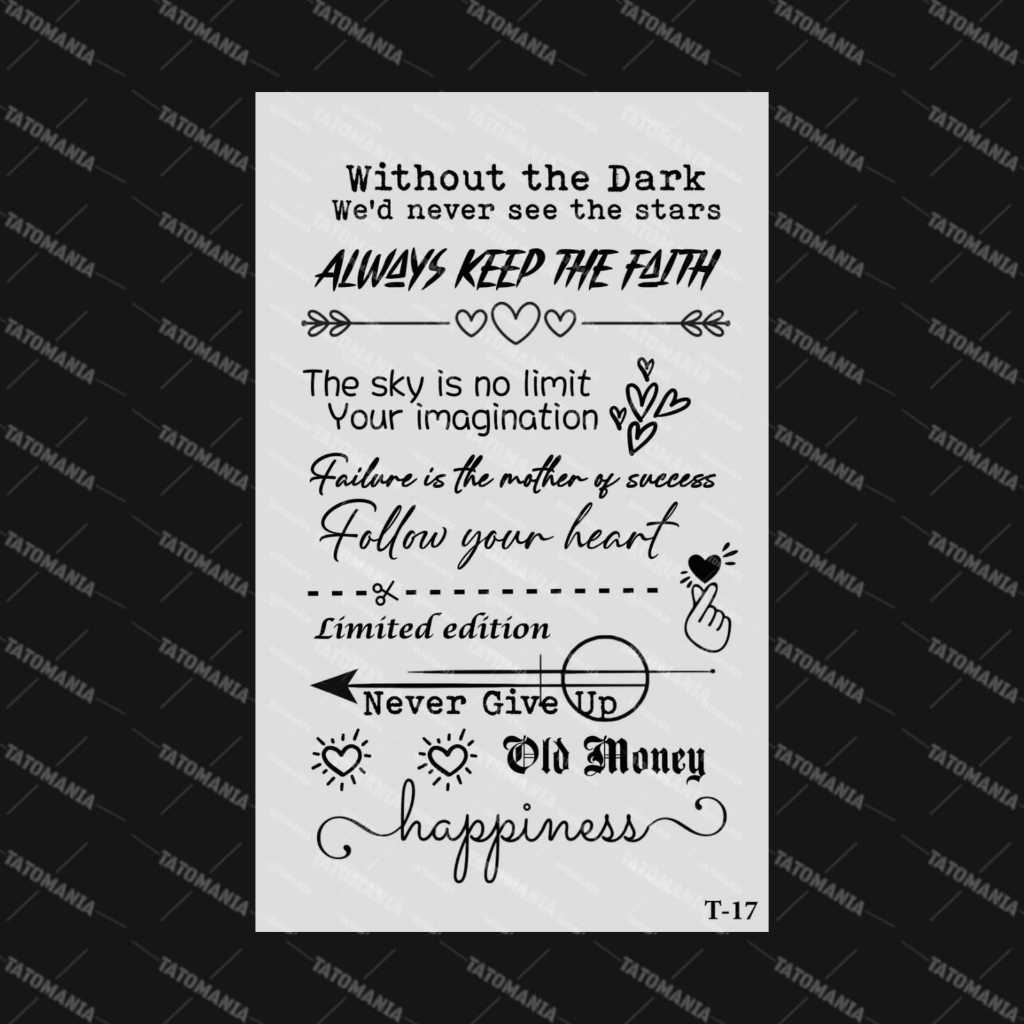 Without the Dark
We'd never see the stars
ALWAYS KEEP THE FAITH
The sky is no limit
Your imagination
Failure is the mother of success
Follow your heart
Limited edition
Never Give Up
Old Money
happiness
T-17
TATOMANIA